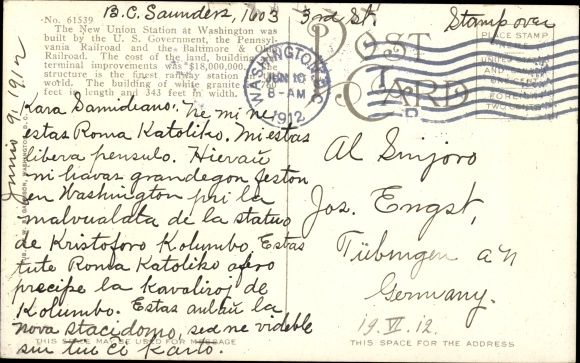 B. C. Saunders, 1603 3rd St. Stamp over
No. 61539
The New Union Station at Washington was
built by the U. S. Government, the Pennsyl-
vania Railroad and the Baltimore & Ohio
Railroad. The cost of the land, building
terminal improvements was $18,000,000. The
structure is the finest railway station
world. The building of white granite 760
feet in length and 343 feet in width.
Junio 9, 1912
WASHINGTON, D.C.
JUN 10
8-AM
1912
POST CARD
PLACE STAMP
Kara Samideano: Ne mi ne
estas Roma Katoliko. Mi estas
libera pensulo. Hieraŭ
ni havas grandegon feston
en Washington pri la
malvualata de la statuo
de Kristoforo Kolumbo. Estas
tute Roma Katoliko afero
precipe la Kavaliroj de
Kolumbo. Estas ankaŭ la
nova stacidomo, sed ne videble
sur tui ĉi karto.
Al Sinjoro
Jos. Engst,
Tübingen a/n
Germany.
19. VI. 12.
THIS SPACE MAY BE USED FOR MESSAGE
THIS SPACE FOR THE ADDRESS